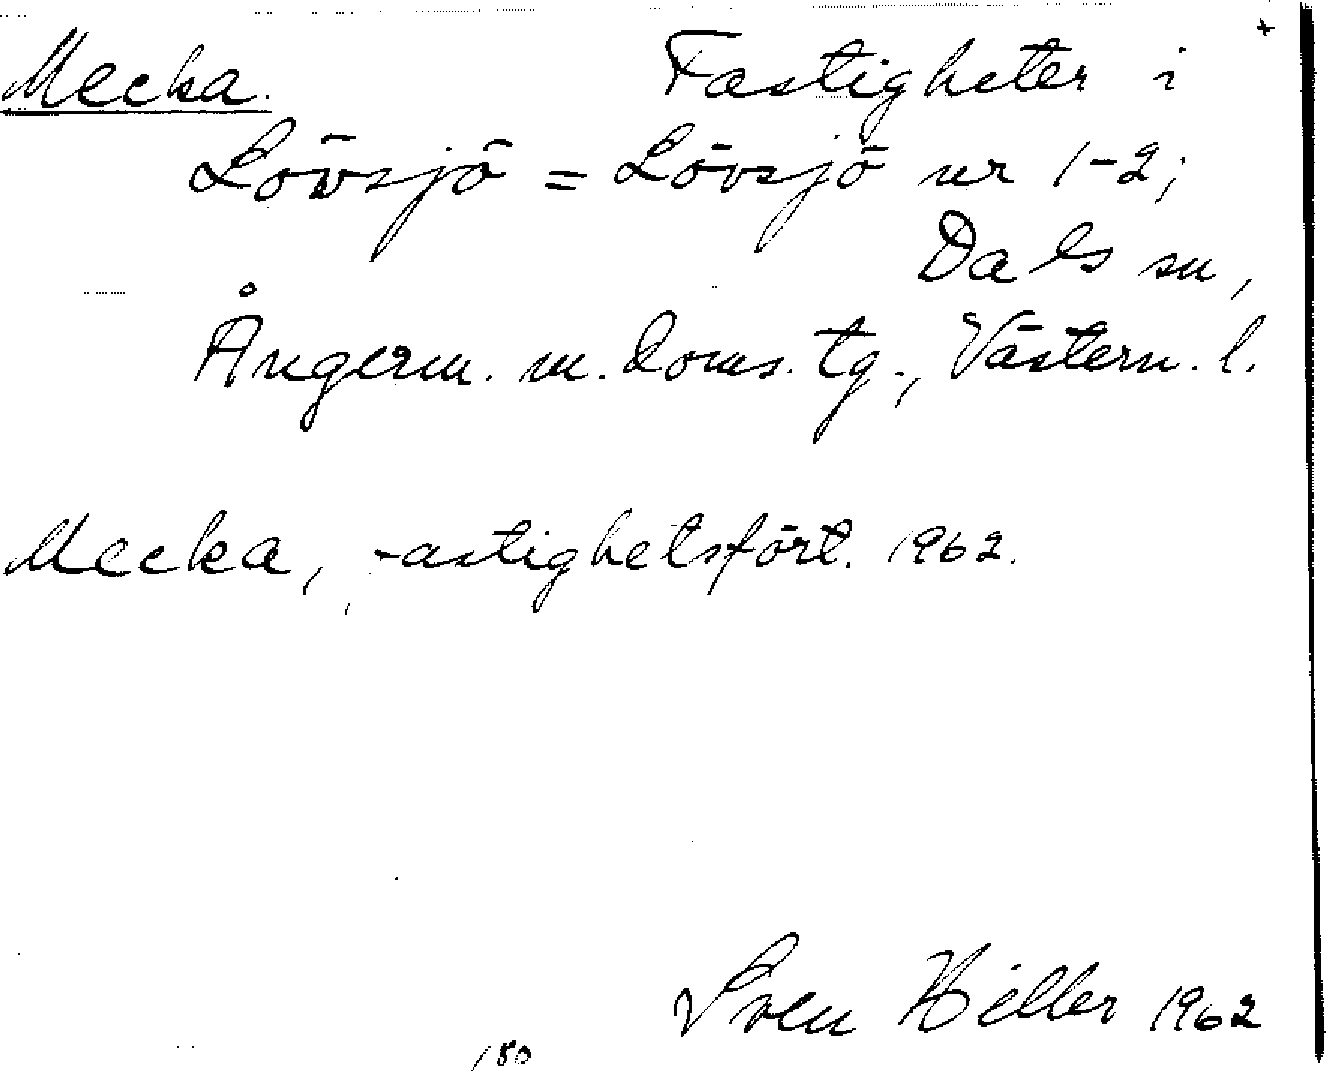 Mecka. Fastigheter i
Lövsjö = Lövsjö nr 1-2;
Dals sn,
Ångerm. m. doms. tg., Västern. l.
Mecka, fastighetsfört. 1962.
Sven Hiller 1962
180